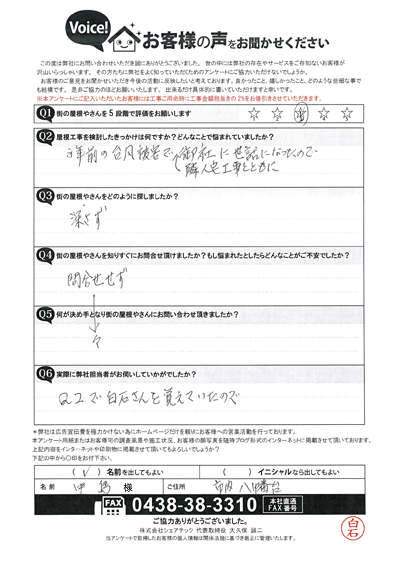 Voice!
お客様の声をお聞かせください
この度は弊社にお問い合わせいただき誠にありがとうございました。世の中には弊社の存在やサービスをご存知ないお客様が
沢山いらっしゃいます。その方たちに弊社をよく知っていただくためのアンケートにご協力いただけないでしょうか。
お客様のご意見をお聞かせいただき今後の活動に反映したいと考えております。良かったこと、嬉しかったこと、どのような些細な事で
も結構です。是非ご協力のほどお願いいたします。出来るだけ具体的に書いていただけますと幸いです。
※本アンケートにご記入いただいたお客様には工事ご用命時に工事金額税抜きの2%をお値引きさせていただきます。
Q1 街の屋根やさんを5段階で評価をお願いします
☆ ☆ ☆ ☆ ☆
Q2 屋根工事を検討したきっかけは何ですか？どんなことで悩まれていましたか？
3年前の台風被害で、御社に世話になったので
隣人宅工事とともに
Q3 街の屋根やさんをどのように探しましたか？
探さず
Q4 街の屋根やさんを知りすぐにお問合せ頂けましたか？もし悩まれたとしたらどんなことがご不安でしたか？
問合せせず
Q5 何が決め手となり街の屋根やさんにお問い合わせ頂きましたか？
々
Q6 実際に弊社担当者がお伺いしていかがでしたか？
Q2で白石さんを覚えていたので
※弊社は広告宣伝費を極力かけない為にホームページだけを頼りにお客様への営業活動を行っております。
本アンケート用紙またはお客様宅の調査風景や施工状況、お客様の顔写真を随時ブログ形式のインターネットに掲載させて頂いております。
上記内容をインターネットや印刷物に掲載させて頂いてもよろしいでしょうか？
下記の中から〇印をお付下さい。
(✓)名前を出してもよい ( )イニシャルなら出してもよい
名前 中島 様 ご住所 市内 八幡台
FAX 0438-38-3310 本社直通 FAX番号
ご協力ありがとうございました。
株式会社シェアテック 代表取締役 大久保 誠二
当アンケートで取得したお客様の個人情報は関係法規に基づき厳正に管理いたします。
白石